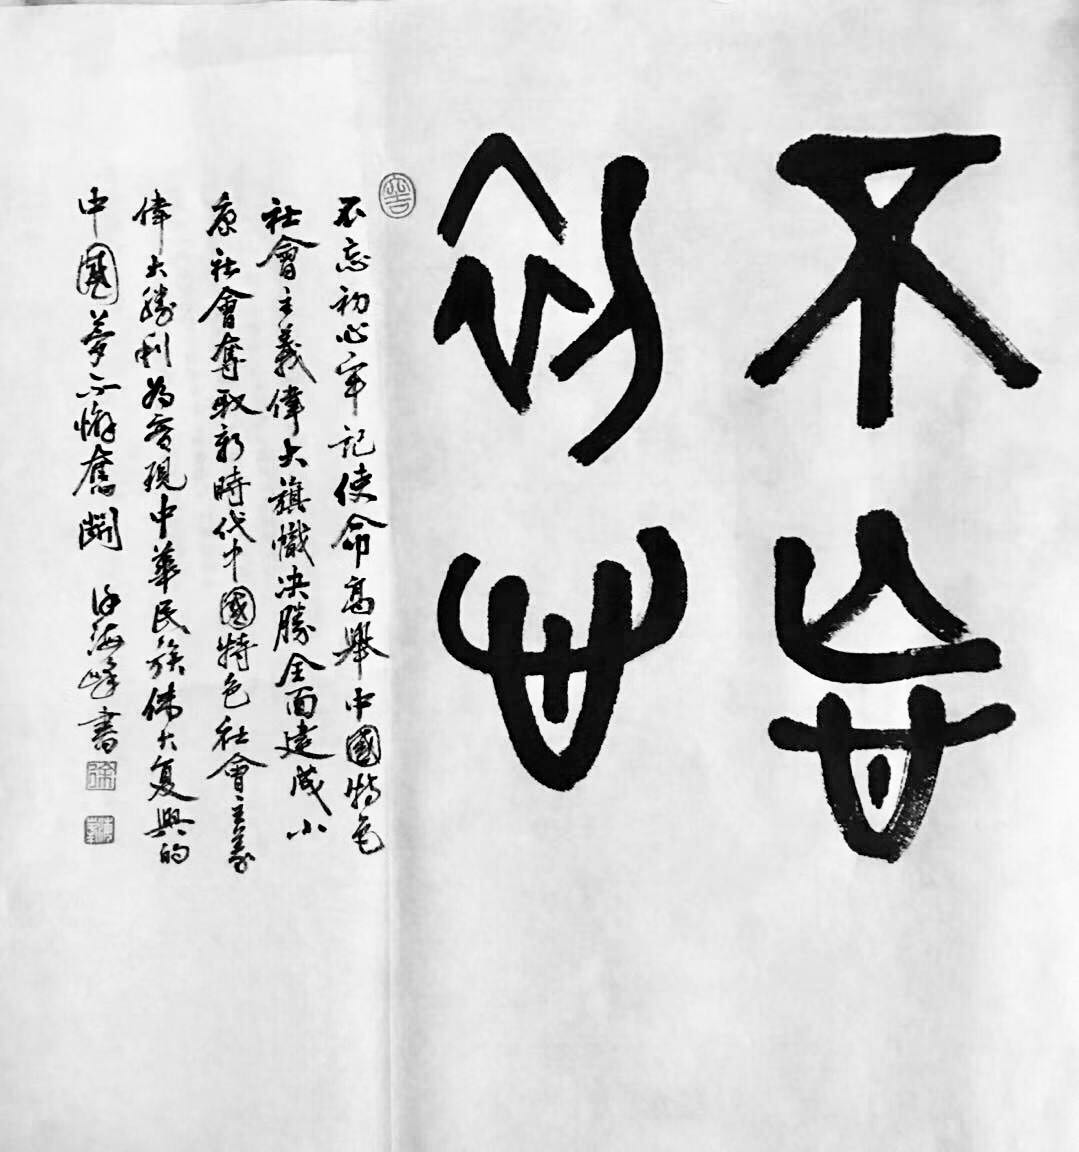 不忘
初心
不忘初心牢记使命高舉中國特色
社會主義偉大旗幟决勝全面建成小
康社會奪取新時代中國特色社會主義
偉大勝利為實現中華民族偉大复興的
中國夢不懈奮鬭
徐海峰書